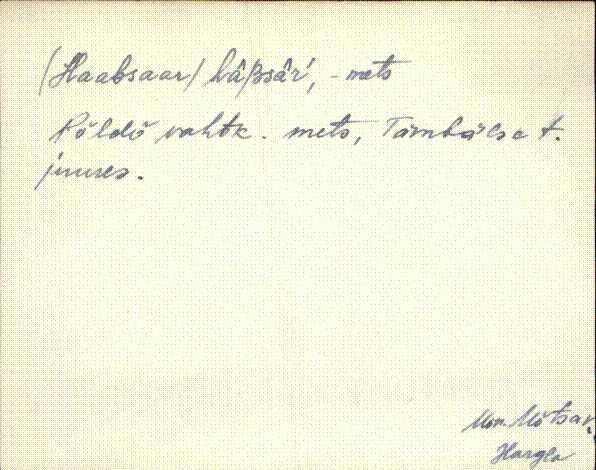 (Haabsaar) hâʙsâŕ, -mets
Põldõ vahtk. mets, Tämbälse t.
juures.
Mõn. Mõtsav.
Hargla